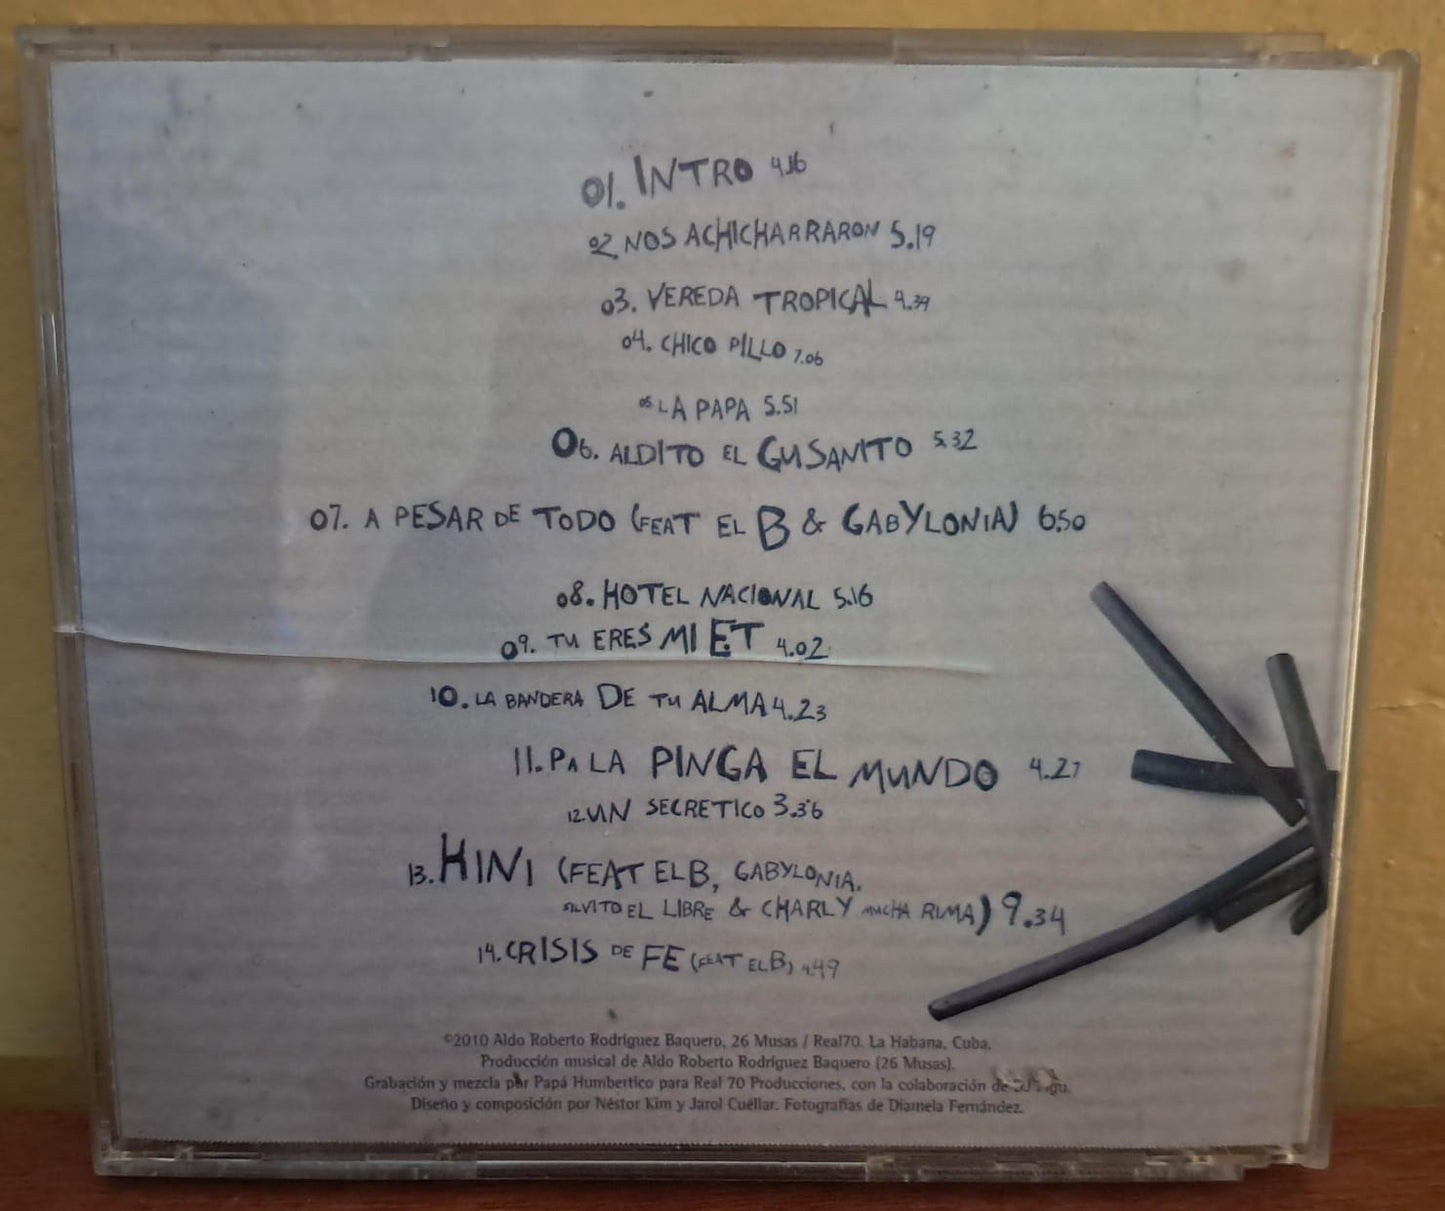 01. INTRO 4.16
02. NOS ACHICHARRARON 5.19
03. VEREDA TROPICAL 4.39
04. CHICO PILLO 7.06
05 LA PAPA 5.51
06. ALDITO EL GUSANITO 5.32
07. A PESAR DE TODO (FEAT EL B & GABYLONIA) 6.50
08. HOTEL NACIONAL 5.16
09. TU ERES MI ET 4.02
10. LA BANDERA DE TU ALMA 4.23
11. PA LA PINGA EL MUNDO 4.27
12. UN SECRETICO 3.36
13. KINI (FEAT EL B, GABYLONIA,
SILVITO EL LIBRE & CHARLY MUCHA RIMA) 9.34
14. CRISIS DE FE (FEAT EL B) 4.49
©2010 Aldo Roberto Rodríguez Baquero, 26 Musas / Real70. La Habana, Cuba.
Producción musical de Aldo Roberto Rodríguez Baquero (26 Musas).
Grabación y mezcla por Papá Humbertico para Real 70 Producciones, con la colaboración de
Diseño y composición por Néstor Kim y Jarol Cuéllar. Fotografías de Diamela Fernández.